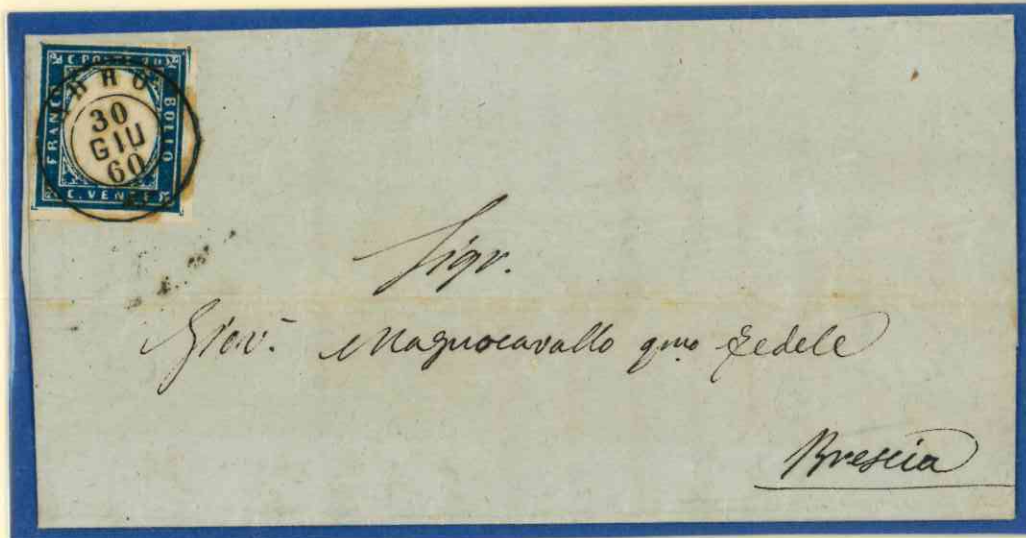 C. POSTE 20
FRANCO
BOLLO
C. VENTI
30
GIU
60
Sigr.
Giov. Magnocavallo qm Fedele
Brescia